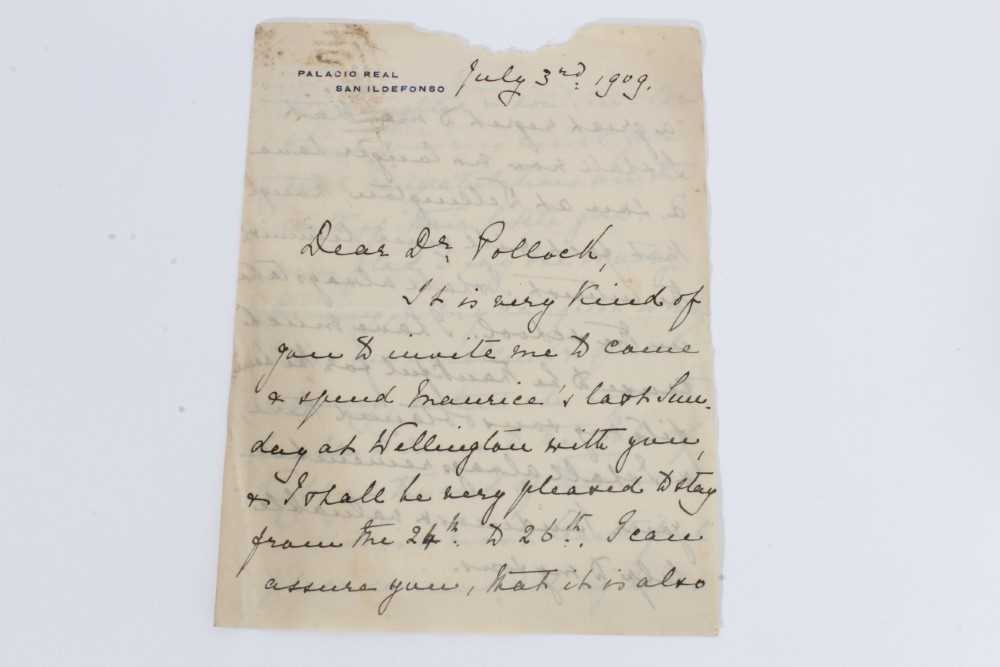 PALACIO REAL
SAN ILDEFONSO
July 3rd. 1909.
Dear Dr. Pollock,
It is very kind of
you to invite me to come
& spend Maurice's last Sun-
day at Wellington with you,
& I shall be very pleased to stay
from the 24th. to 26th. I can
assure you, that it is also